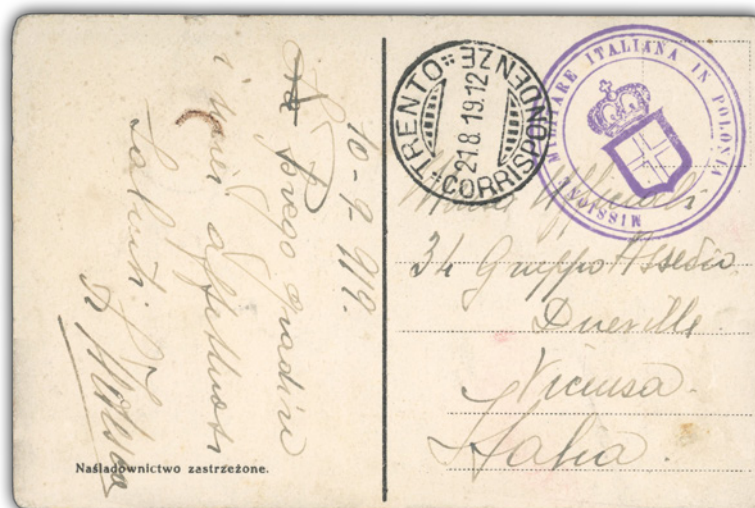 10-9-919.
Prego gradire
i miei affettuosi
Saluti.
Naśladownictwo zastrzeżone.
TRENTO
CORRISPONDENZE
21.8.19.12
MISSIONE MILITARE ITALIANA IN POLONIA
Mensa Ufficiali
34 Gruppo Assedio
Dueville
Vicenza.
Italia.